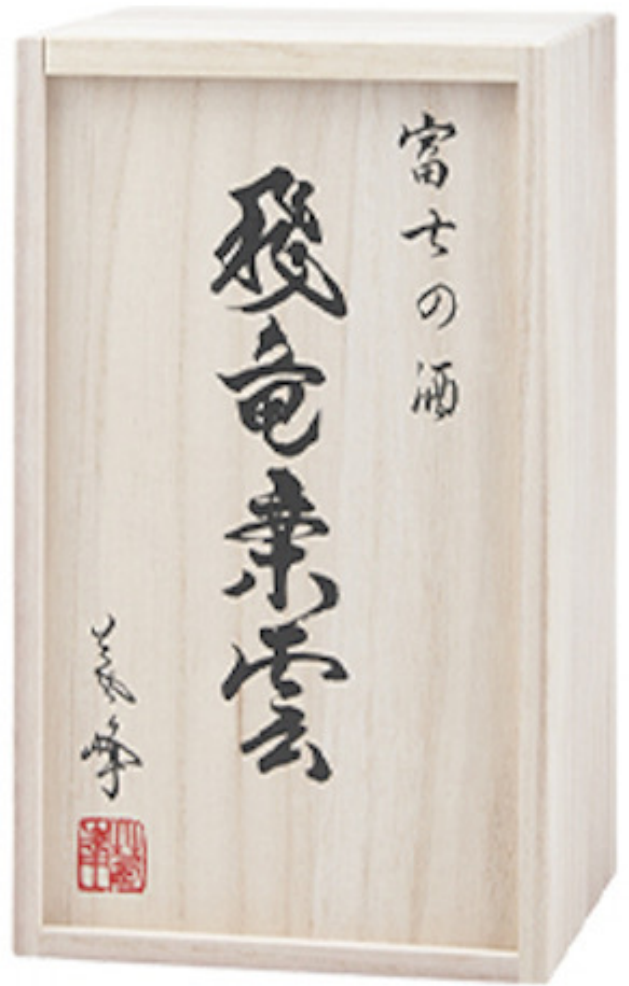 富士の酒
飛竜乗雲
義峰